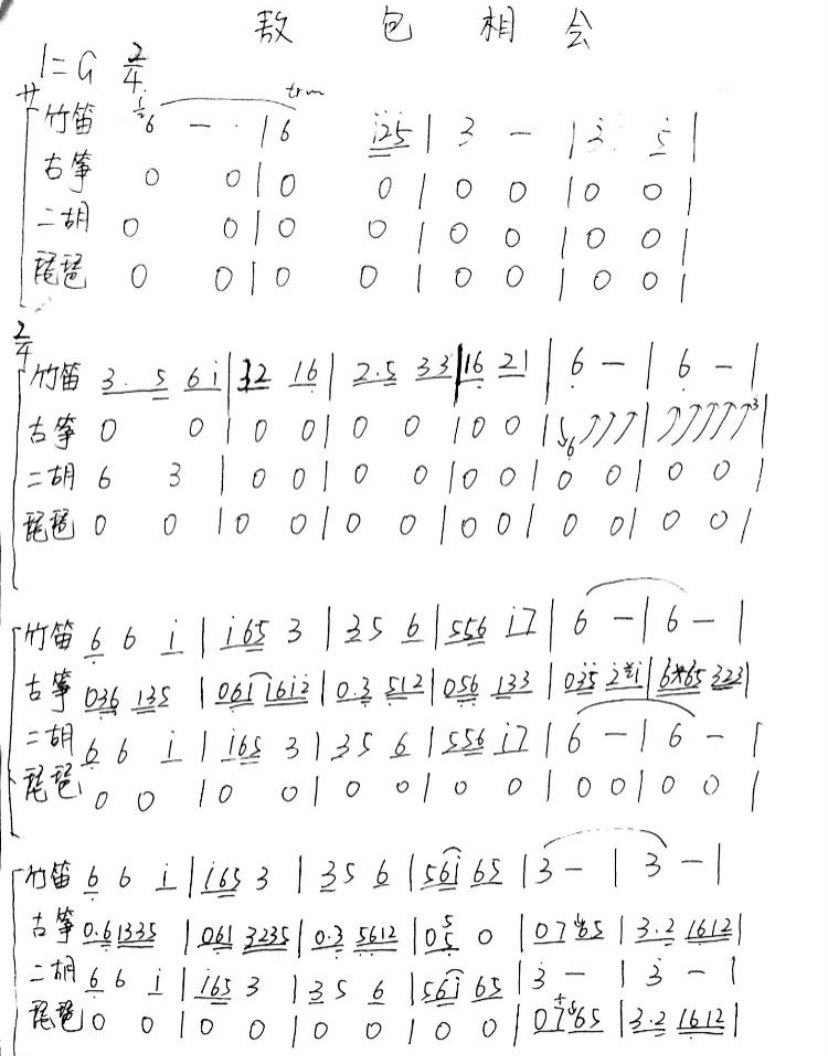 敖包相会
1=G 2/4
サ
竹笛 6 - · | 6 i25 | 3 - | 3 5 |
tr
古筝 0 0 | 0 0 | 0 0 | 0 0 |
二胡 0 0 | 0 0 | 0 0 | 0 0 |
琵琶 0 0 | 0 0 | 0 0 | 0 0 |
2/4
竹笛 3. 5 6i | 32 16 | 2.5 33 | 16 21 | 6 - | 6 - |
古筝 0 0 | 0 0 | 0 0 | 0 0 | 6 ↗↗↗ | ↗↗↗↗↗3 |
二胡 6 3 | 0 0 | 0 0 | 0 0 | 0 0 | 0 0 |
琵琶 0 0 | 0 0 | 0 0 | 0 0 | 0 0 | 0 0 |
竹笛 6 6 i | i65 3 | 35 6 | 556 i7 | 6 - | 6 - |
古筝 036 135 | 061 1612 | 0.3 512 | 056 133 | 035 2 i | 6 65 323 |
二胡 6 6 i | i65 3 | 35 6 | 556 i7 | 6 - | 6 - |
琵琶 0 0 | 0 0 | 0 0 | 0 0 | 0 0 | 0 0 |
竹笛 6 6 i | i65 3 | 35 6 | 56i 65 | 3 - | 3 - |
古筝 0.61335 | 061 3235 | 0.3 5612 | 05 5 0 | 07 65 | 3.2 1612 |
二胡 6 6 i | i65 3 | 35 6 | 56i 65 | 3 - | 3 - |
琵琶 0 0 | 0 0 | 0 0 | 0 0 | 07 65 | 3.2 1612 |